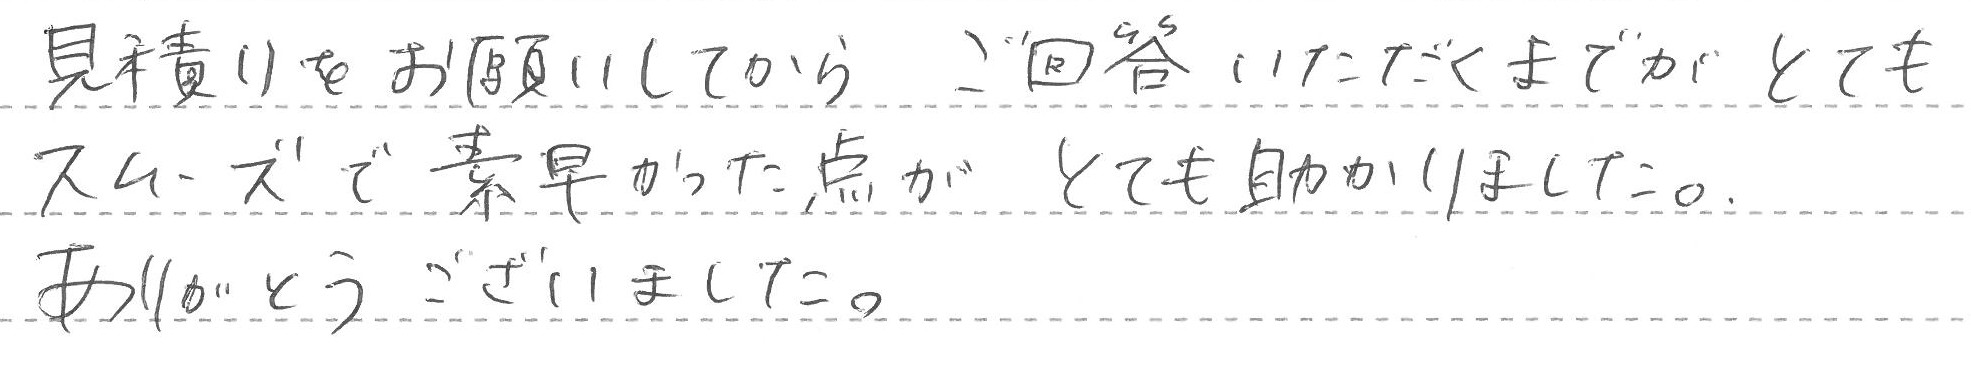 見積りをお願いしてから ご回答いただくまでがとても
スムーズで素早かった点が とても助かりました。
ありがとうございました。